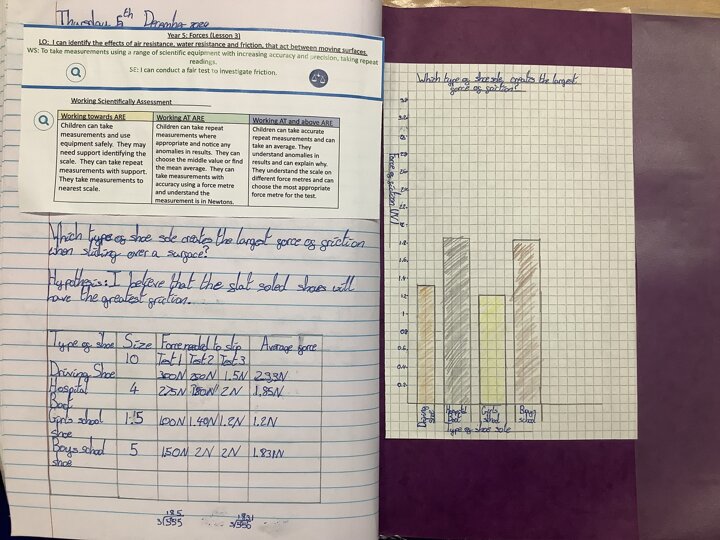 Thursday 5th December 2024
Year 5: Forces (Lesson 3)
LO: I can identify the effects of air resistance, water resistance and friction, that act between moving surfaces.
WS: To take measurements using a range of scientific equipment with increasing accuracy and precision, taking repeat
readings.
SE: I can conduct a fair test to investigate friction.
Working Scientifically Assessment
Working towards ARE
Children can take
measurements and use
equipment safely. They may
need support identifying the
scale. They can take repeat
measurements with support.
They take measurements to
nearest scale.
Working AT ARE
Children can take repeat
measurements where
appropriate and notice any
anomalies in results. They can
choose the middle value or find
the mean average. They can
take measurements with
accuracy using a force metre
and understand the
measurement is in Newtons.
Working AT and above ARE
Children can take accurate
repeat measurements and can
take an average. They
understand anomalies in
results and can explain why.
They understand the scale on
different force metres and can
choose the most appropriate
force metre for the test.
Which type of shoe sole creates the largest force of friction
when sliding over a surface?
Hypothesis: I believe that the flat soled shoes will
have the greatest friction.
Type of shoe Size Force needed to slip Average force
Test 1 Test 2 Test 3
Driving Shoe 10 300N 250N 1.5N 2.33N
Hospital Boot 4 225N 2N 1.85N
Girls school shoe 1.5 100N 1.40N 1.2N 1.2N
Boys school shoe 5 150N 2N 2N 1.831N
185
3)555
Which type of shoe sole creates the largest
force of friction?
force of friction (N)
2
1.8
1.6
1.4
1.2
1
0.8
0.6
0.4
0.2
Driving shoe
Hospital Boot
Girls school
Boys school
Type of shoe sole